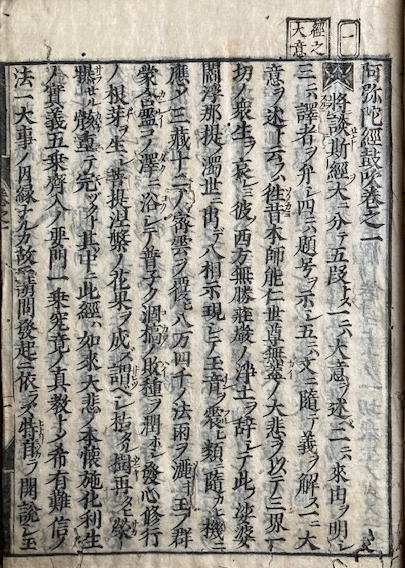 一
經之大意
阿弥陀經鼓吹卷之一
將談斯經大ニ分テ五段トス一ニハ大意ヲ述二ニハ來由ヲ明シ
三ニハ譯者ヲ弁シ四ニハ題号ヲ示シ五ニハ文ニ隨テ義ヲ解ス一ニ大
意ヲ述トハ云ク往昔本師能仁世尊無蓋ノ大悲ヲ以テ三界一
切ノ衆生ヲ哀ミ彼ノ西方無勝莊嚴ノ淨土ヲ辞シテ此ノ娑婆
閻浮那提ノ濁世ニ出デ八相示現シテ玉音ヲ震ヒ類ニ隨カヒ機ニ
應シ三藏十二ノ密雲ヲ覆ヒ八万四千ノ法雨ヲ灑キ玉フ群
蒙合霊コノ澤ニ浴シテ普子ク凋槁ノ敗種ヲ潤ホシ發心修行
ノ根芽ヲ生シ菩提涅槃ノ花果ヲ成ス謂ヘシ枯タル樹再ヒ榮
重テ完ツタシ其中ニ此經ハ如來大悲ノ本懷施化利生
ノ實義五乗齊入ノ要門一乗究竟ノ真教トシテ希有難信ノ
法一大事ノ因縁ナルカ故ニ請問發起ニ依ラズ特自ラ開說シ玉